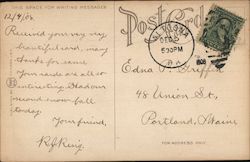 THIS SPACE FOR WRITING MESSAGES
Post Card
12/9/08
Received your very very
beautiful card, many
thanks for same.
Your cards are all so
interesting. Had our
second snow-fall
today.
Your friend,
DEC
5 30 PM
PA.
1908
Edna V. Griffin
48 Union St,
Portland, Maine
FOR ADDRESS ONLY